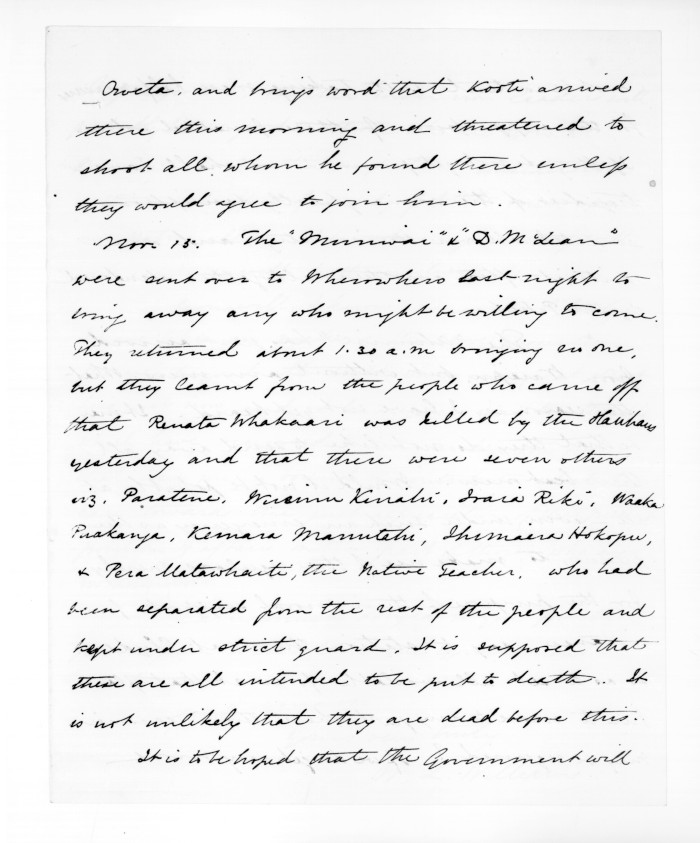 Oweta, and brings word that Kooti arrived
there this morning and threatened to
shoot all whom he found there unless
they would agree to join him.
Nov. 15. The "Muriwai" & "D. McLean"
were sent over to Wherowhero last night to
bring away any who might be willing to come.
They returned about 1.30 a.m bringing no one,
but they learnt from the people who came off
that Renata Whakaari was killed by the Hauhaus
yesterday and that there were seven others
viz. Paratene, Kiniahi, Iraia Riki, Waaka
Puakanga, Kemara Manutahi, Ihimaera Hokopu,
& Pera Matawhaiti, the Native Teacher, who had
been separated from the rest of the people and
kept under strict guard. It is supposed that
these are all intended to be put to death. It
is not unlikely that they are dead before this.
It is to be hoped that the Government will